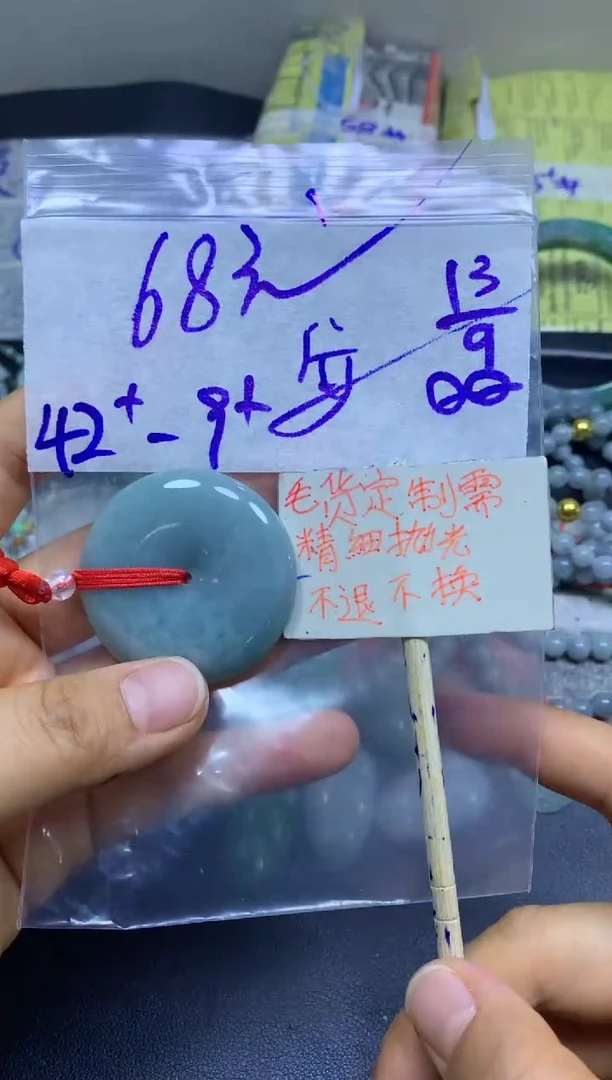 68元
13
9
42+-9+厚
毛货定制需
精细抛光
不退不换